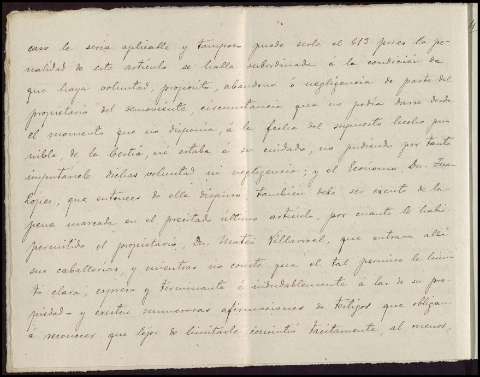 caso le seria aplicable y tampoco puede serlo el 613 pues la pe-
nalidad de este artículo se halla subordinada á la condición de
que haya voluntad, propósito, abandono ó negligencia de parte del
propietario del semoviente, circunstancia que no podia darse desde
el momento que no disponia, á la fecha del supuesto hecho pu-
nible, de la bestia, ni estaba á su cuidado, no pudiendo por tanto
imputársele dichas voluntad ni negligencia; y el Economo, Dn.
que entonces de ella disponia tambien debe ser exento de la
pena marcada en el precitado último artículo, por cuanto le habia
permitido el propietario, Dn. Mateo Villarreal, que entrara allí
sus caballerias, y mientras no conste que el tal permiso le limi-
tó clara, expresa y terminante é indudablemente á la de su pro-
piedad y existen numerosas afirmaciones de testigos que obligan
á reconocer que lejos de limitarlo consintió tacitamente, al menos,